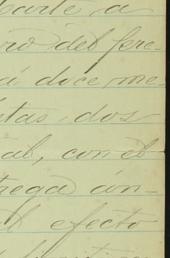 parte, a
ro del pre-
á doce me-
tas dos
al, con el
trega án-
l efecto